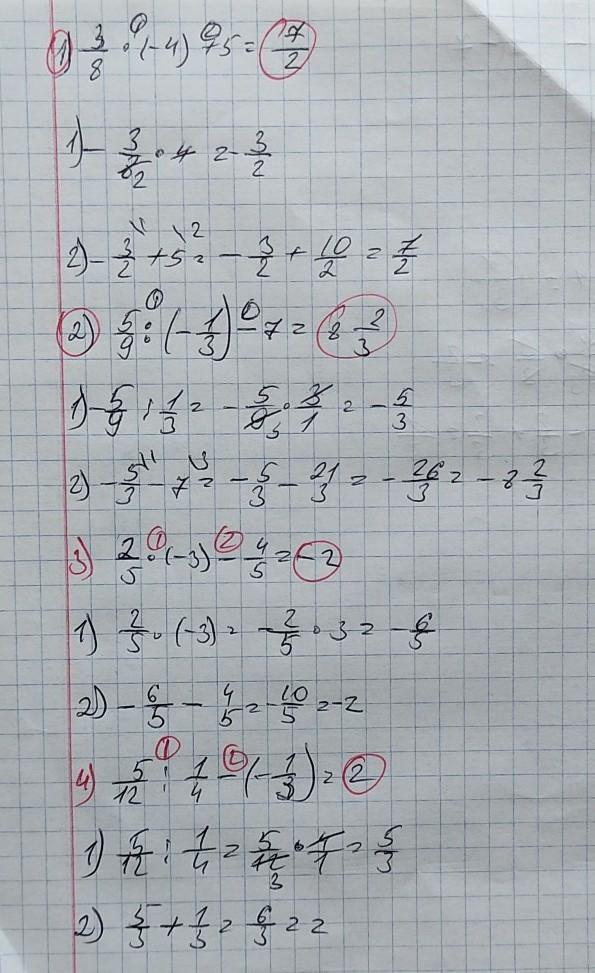 1) 3/8 · (-4) + 5 = 7/2
1) - 3/8 2 · 4 = - 3/2
2) - 3/2 \1 + 5 \2 = - 3/2 + 10/2 = 7/2
2) 5/9 : (- 1/3) - 7 = 8 2/3
1) - 5/9 : 1/3 = - 5/9 3 · 3/1 = - 5/3
2) - 5/3 \1 - 7 \3 = - 5/3 - 21/3 = - 26/3 = - 8 2/3
3) 2/5 · (-3) - 4/5 = -2
1) 2/5 · (-3) = - 2/5 · 3 = - 6/5
2) - 6/5 - 4/5 = - 10/5 = -2
4) 5/12 : 1/4 - (- 1/3) = 2
1) 5/12 : 1/4 = 5/12 3 · 4/1 = 5/3
2) 5/3 + 1/3 = 6/3 = 2